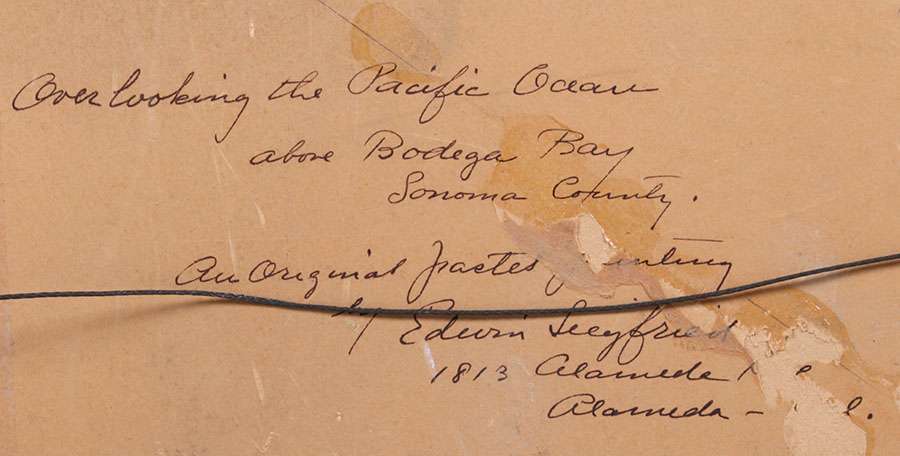 Overlooking the Pacific Ocean
above Bodega Bay
Sonoma County.
An Original pastel
by Edwin Siegfried
1813 Alameda
Alameda -